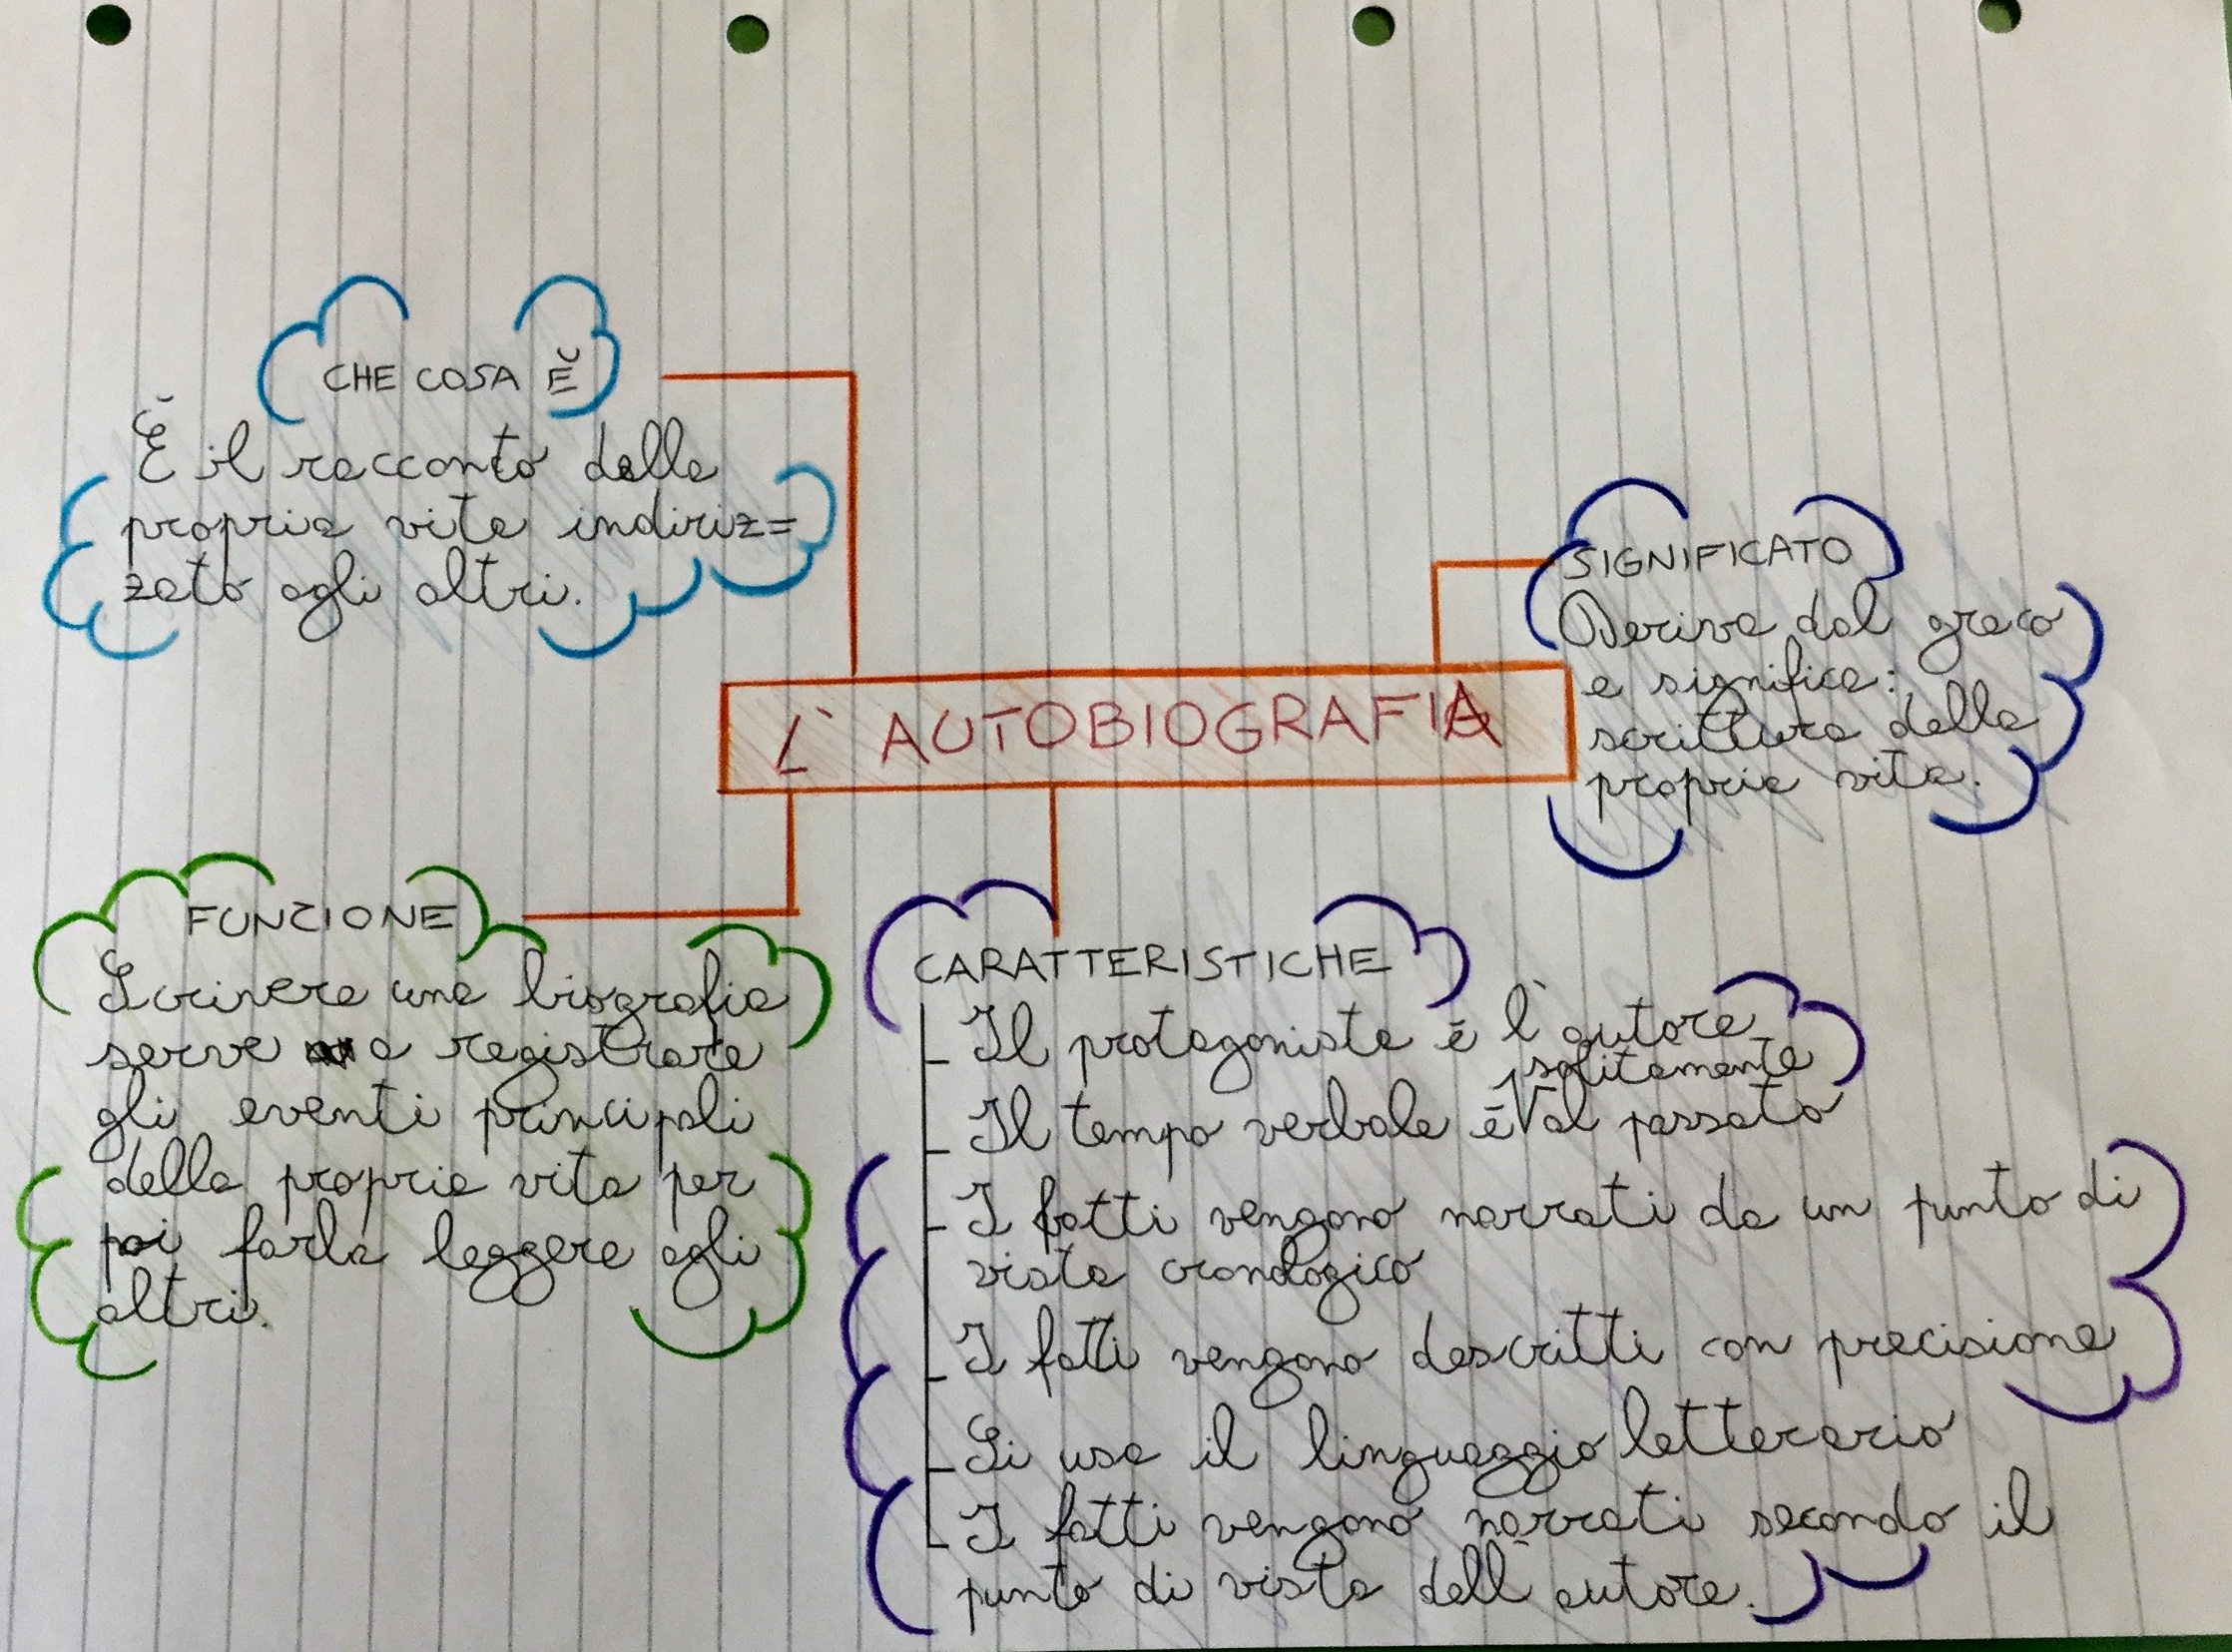 CHE COSA È
È il racconto della
propria vita indiriz=
zato agli altri.
SIGNIFICATO
Deriva dal greco
e significa:
scrittura della
propria vita.
L'AUTOBIOGRAFIA
FUNZIONE
Scrivere una biografia
serve a registrare
gli eventi principali
della propria vita per
poi farla leggere agli
altri.
CARATTERISTICHE
- Il protagonista è l'autore
solitamente
- Il tempo verbale è al passato
- I fatti vengono narrati da un punto di
vista cronologico
- I fatti vengono descritti con precisione
- Si usa il linguaggio letterario
- I fatti vengono narrati secondo il
punto di vista dell'autore.